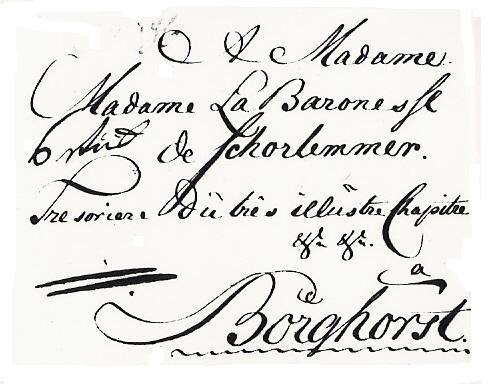 A Madame.
Madame La Baronesse
de Schorlemmer.
Tresoriere Dü três illüstre Chapitre
&c. &c.
a
Börghorst.